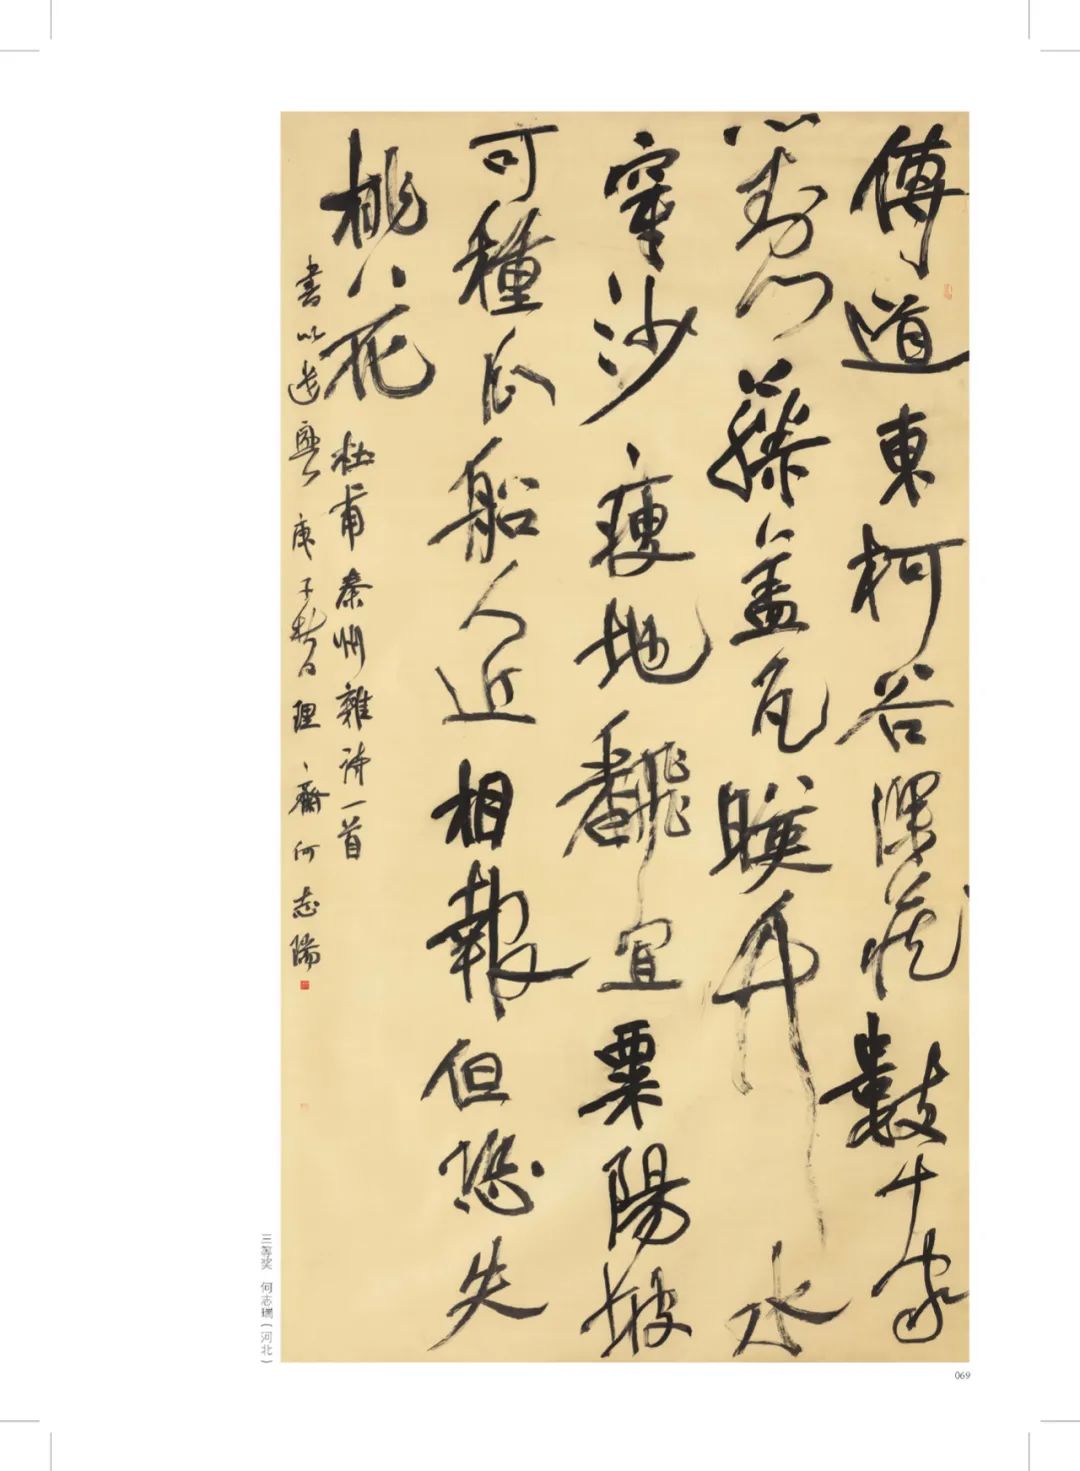 傳道東柯谷深藏數十家
對門藤盖瓦暎竹水
穿沙瘦地飜宜粟陽坡
可種瓜船人近相報但恐失
桃花 杜甫秦州雜詩一首
書以遣興 庚子秋日 理齋何志
三等奖 何志瑞（河北）
069